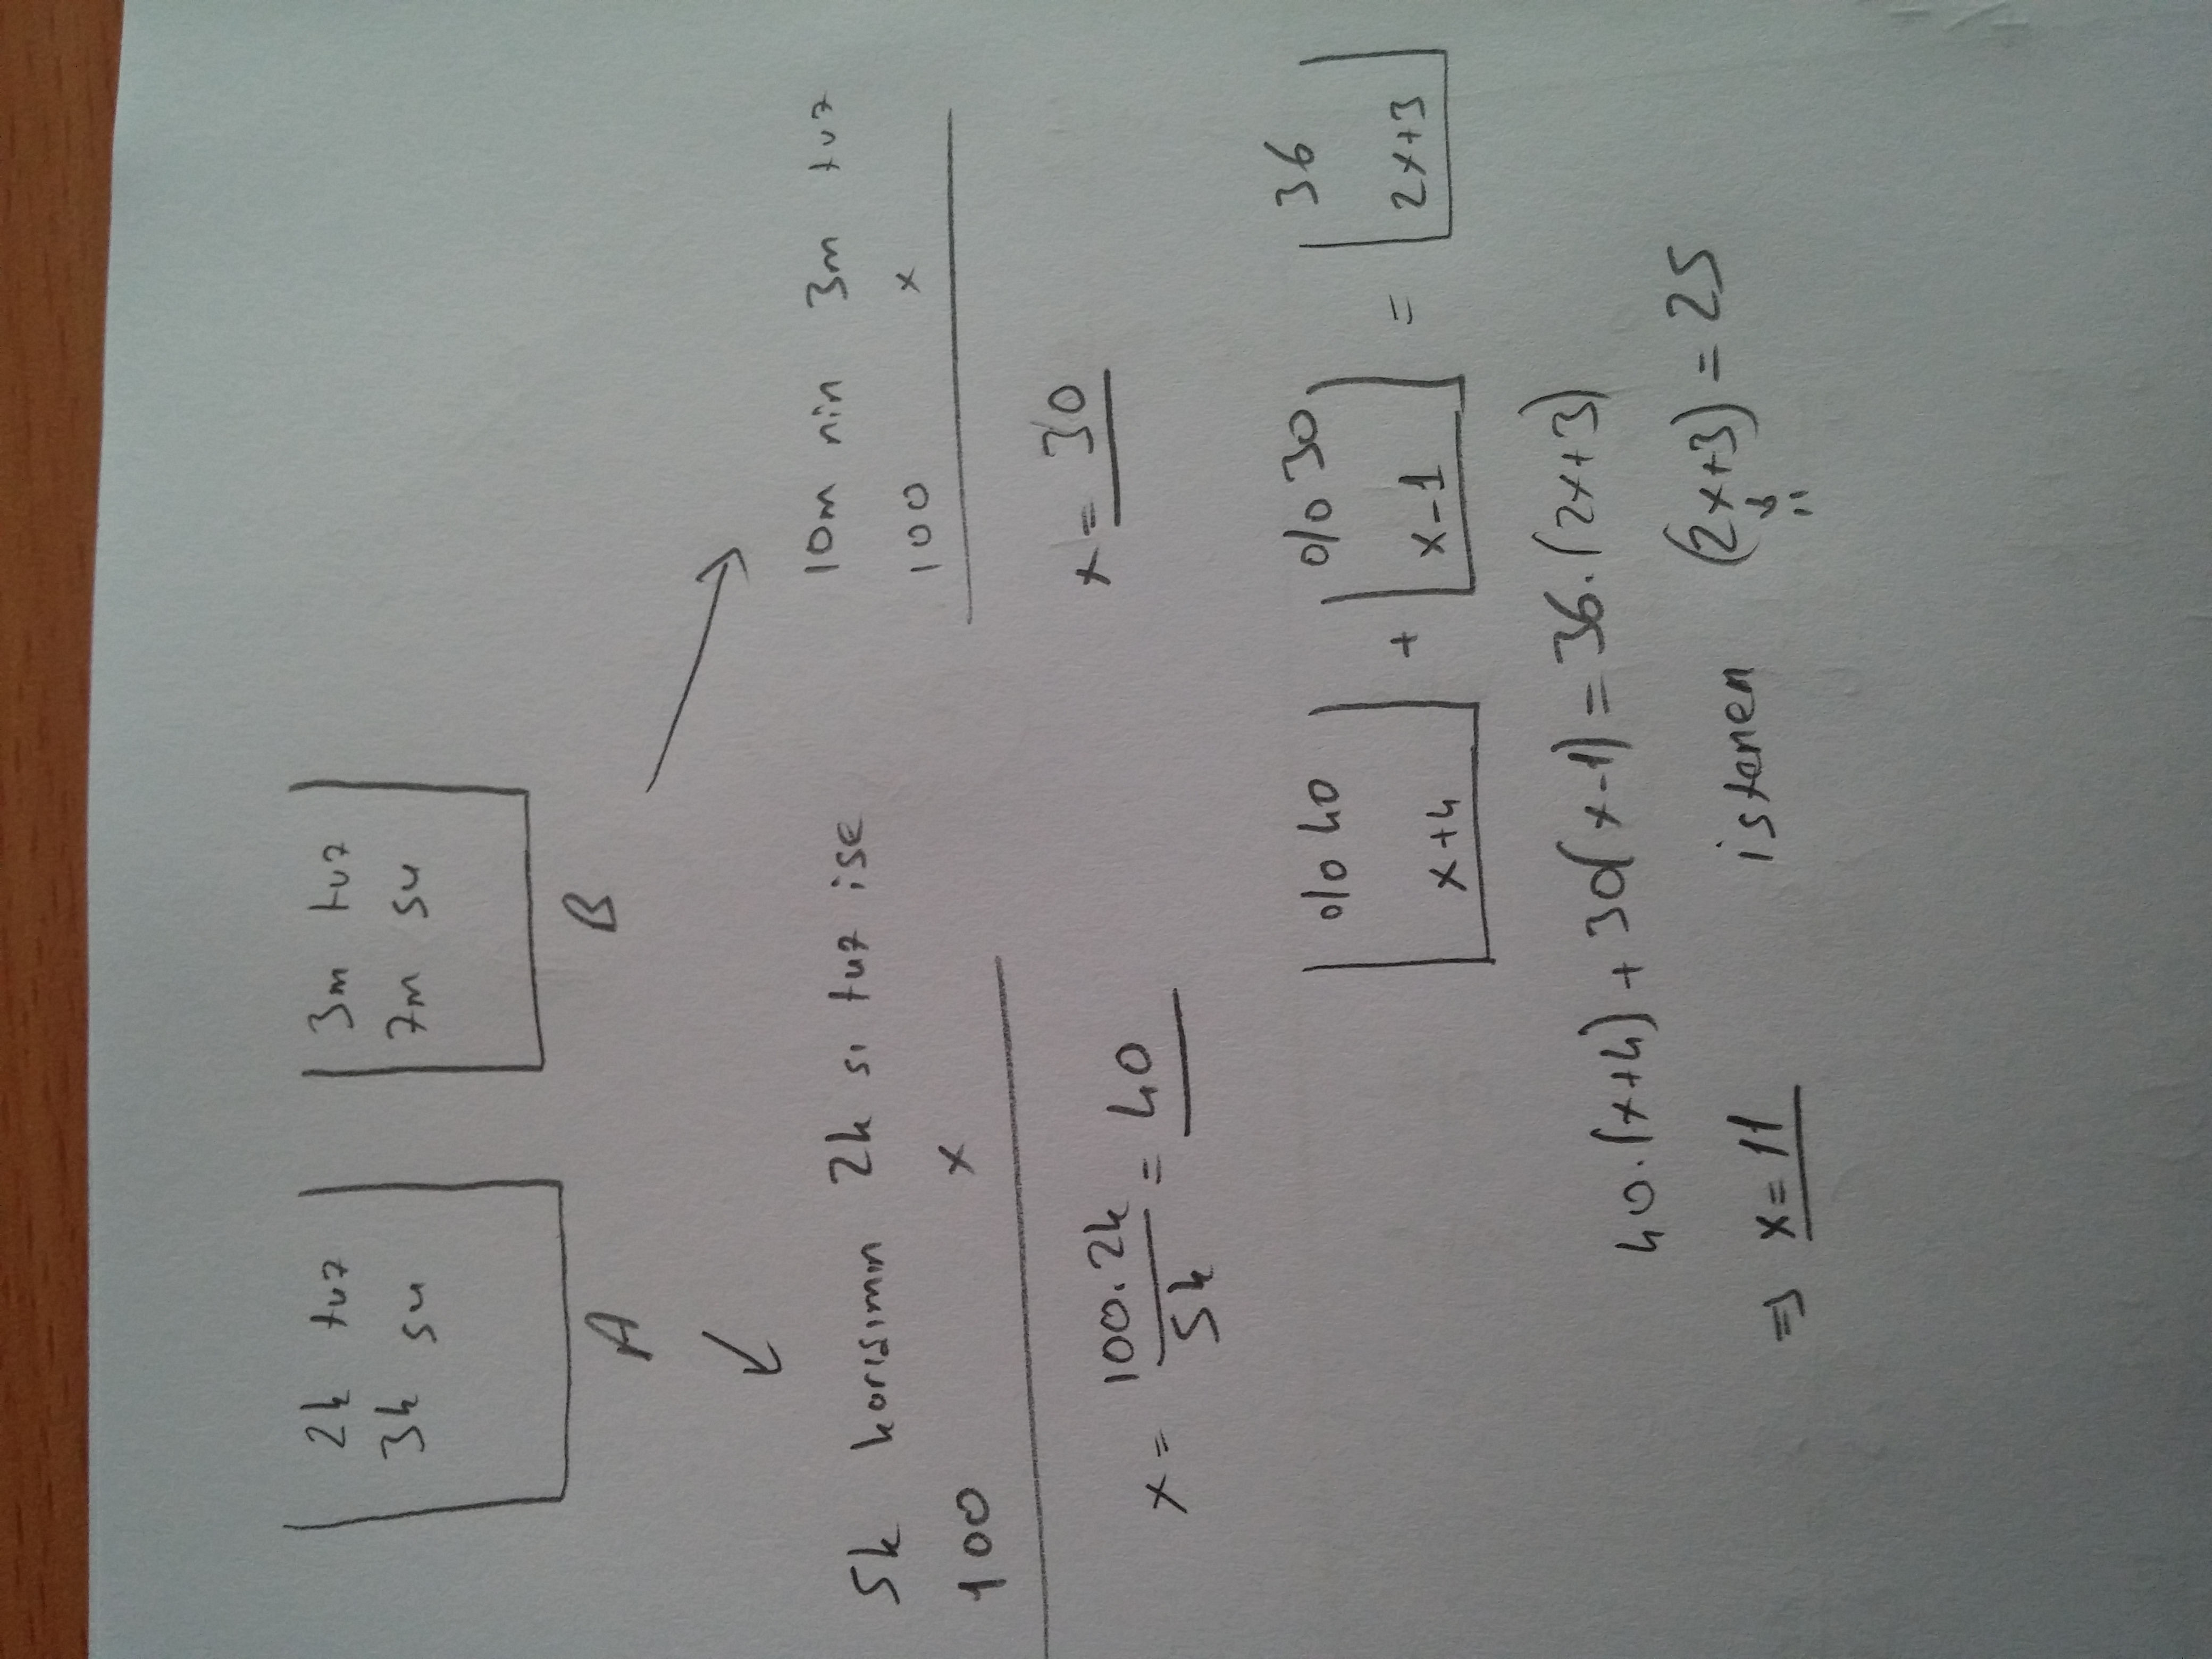 2k tuz
3k su
A
3m tuz
7m su
B
5k karışımın 2k sı tuz ise
100 x
x = 100.2k / 5k = 40
10m nin 3m tuz
100 x
x = 30
%40 x+4 + %30 x-1 = 36 2x+3
40.(x+4) + 30(x-1) = 36.(2x+3)
⇒ x = 11 istenen (2x+3) = 25
11